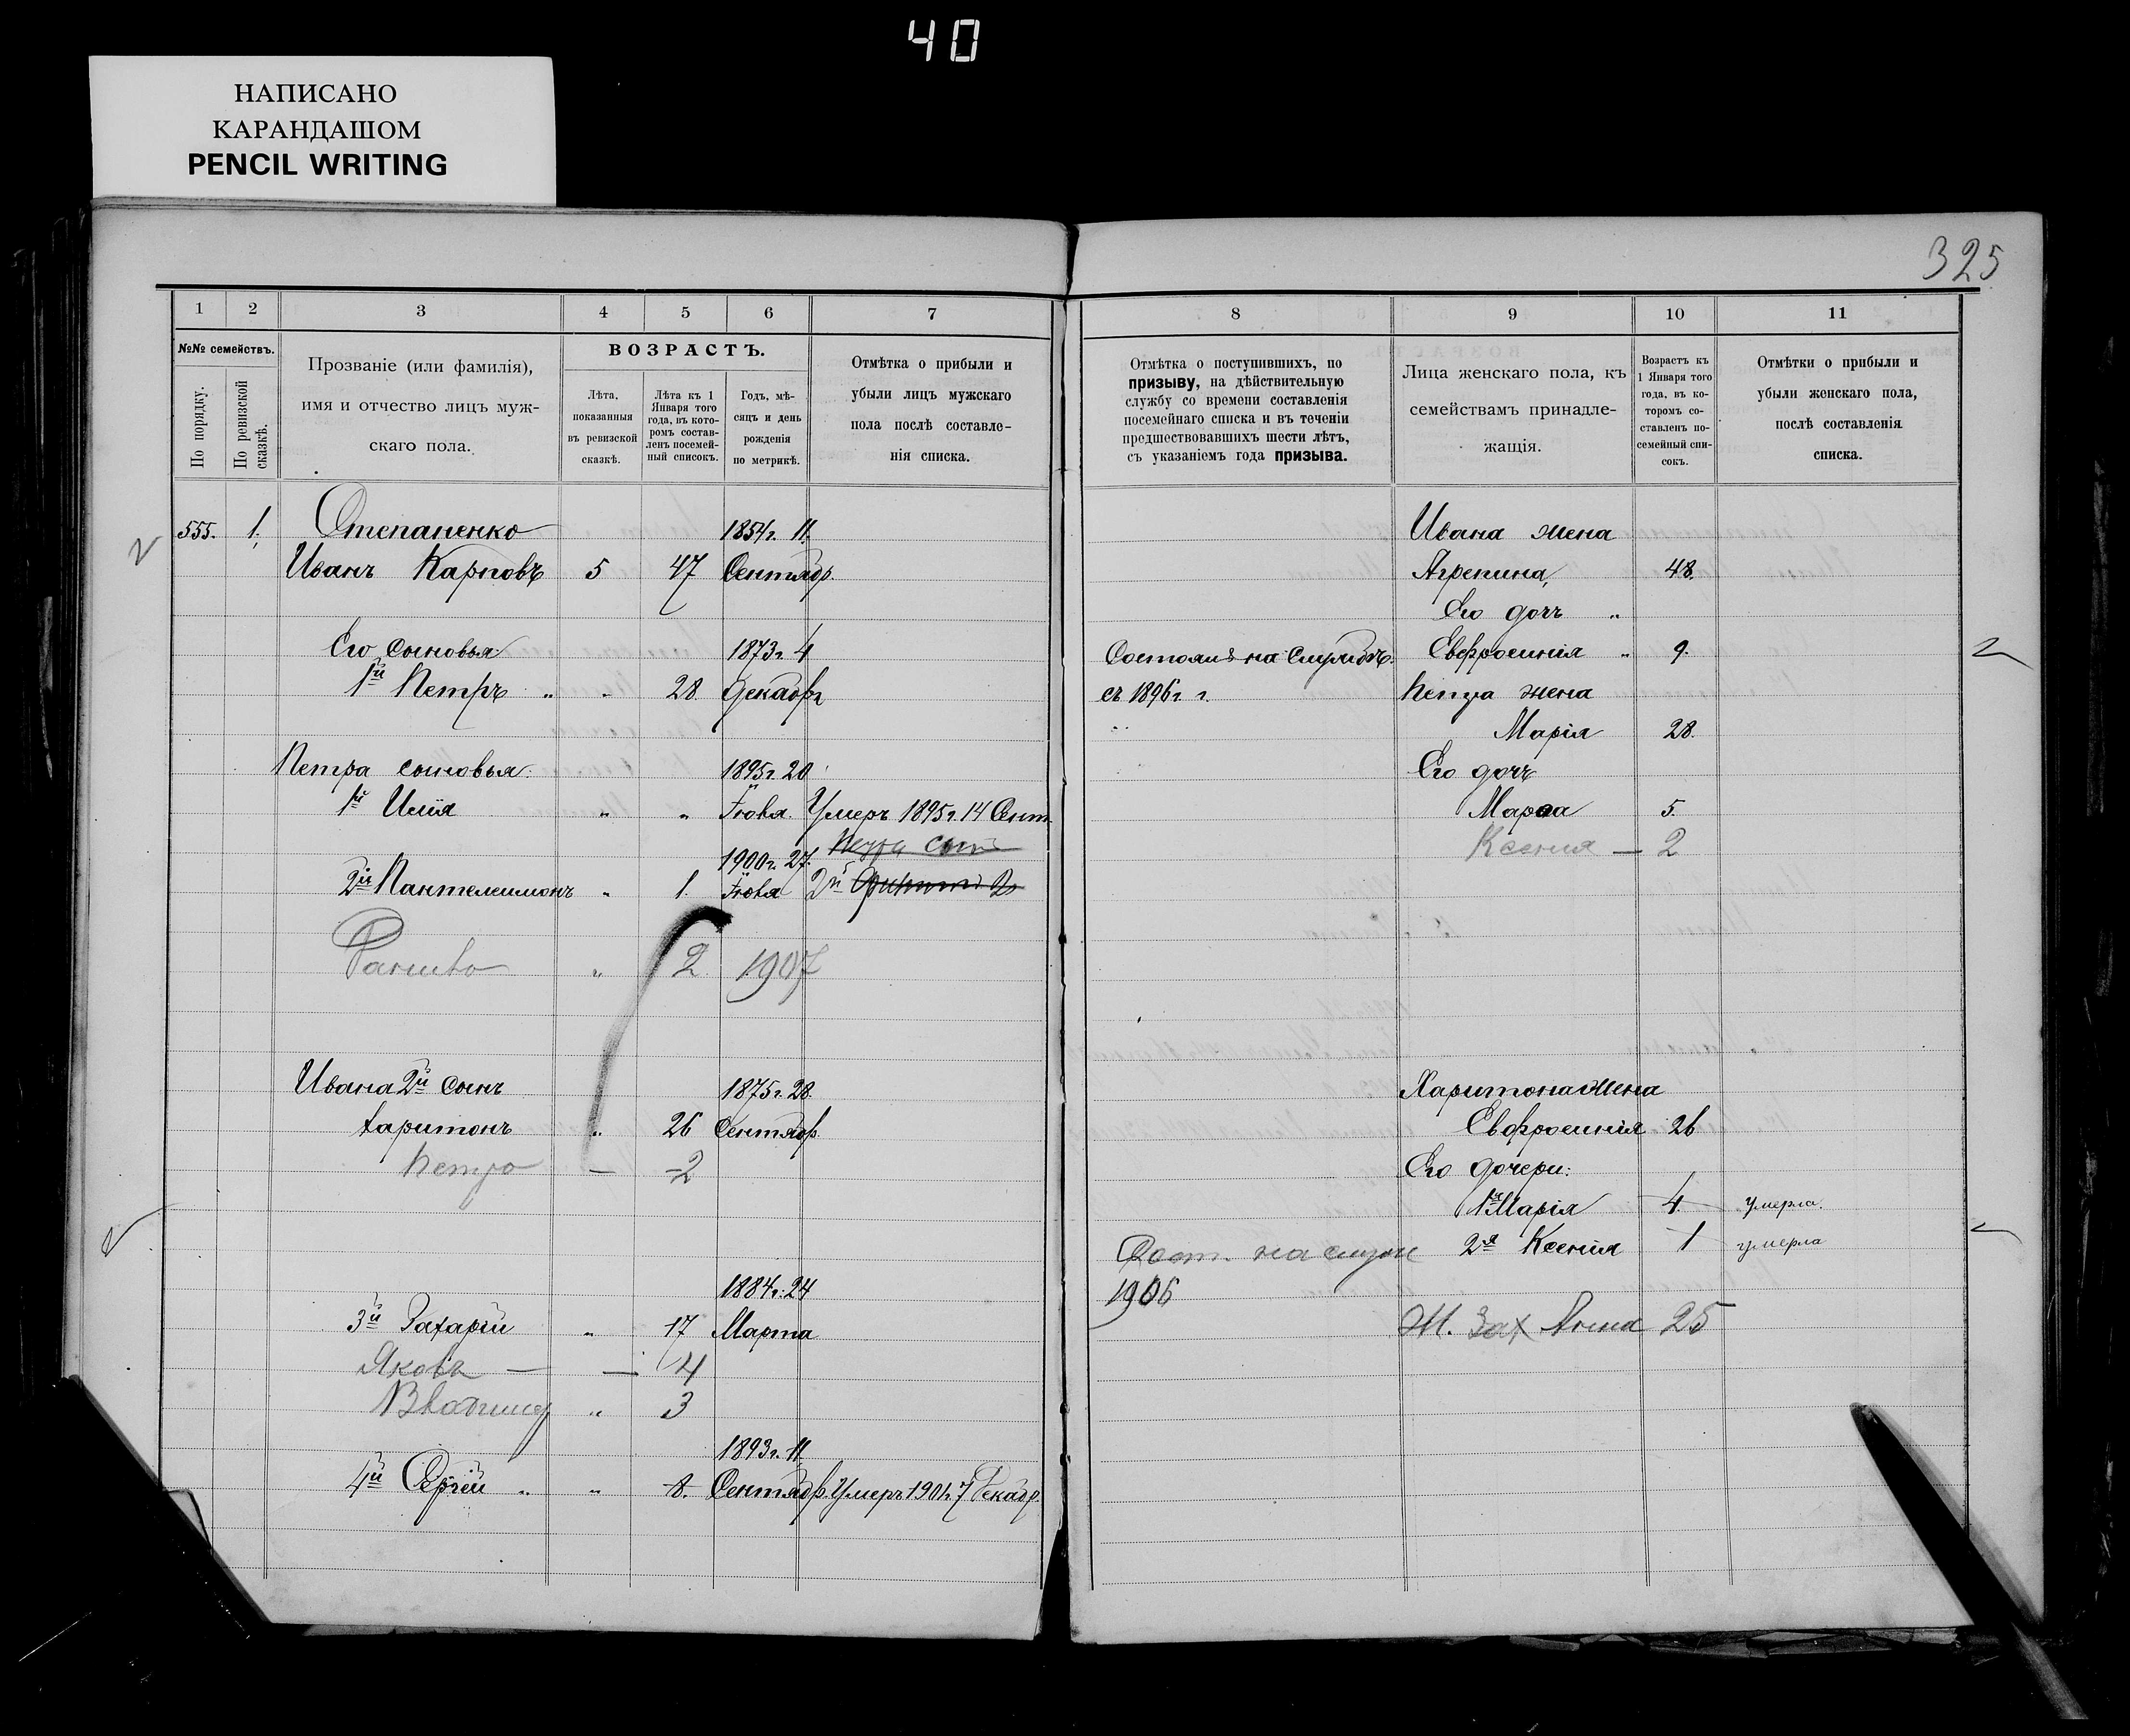 40
НАПИСАНО
КАРАНДАШОМ
PENCIL WRITING
325
1 2 3 4 5 6 7
№№ семействъ.
По порядку.
По ревизской сказкѣ.
Прозваніе (или фамилія),
имя и отчество лицъ муж-
скаго пола.
ВОЗРАСТЪ.
Лѣта,
показанныя
въ ревизской
сказкѣ.
Лѣта къ 1
Января того
года, въ кото-
ромъ состав-
ленъ посемей-
ный списокъ.
Годъ, мѣ-
сяцъ и день
рожденія
по метрикѣ.
Отмѣтка о прибыли и
убыли лицъ мужскаго
пола послѣ составле-
нія списка.
555. 1. Степаненко 1854г. 11.
Иванъ Карповъ 5 47 Сентябр.
Его сыновья 1873г. 4
1й Петръ " " 28. Декабр
Петра сыновья: 1895г. 20
1й Илія " " Іюля. Умеръ 1895г. 14 Сент.
1900г. 27. Петра сынъ
2й Пантелеимонъ " 1. Іюля 2й 2
" 2 1907
Ивана 2й сынъ 1875г. 28.
Харитонъ " 26 Сентябр.
Петро — 2
1884г. 24
3й Захарій " 17 Марта
Яковъ — — 4
Владимир " 3
1893г. 11
4й Сергѣй " " 8. Сентябр. Умеръ 1901г. 7 Декабр.
8 9 10 11
Отмѣтка о поступившихъ, по
призыву, на дѣйствительную
службу со времени составленія
посемейнаго списка и въ теченіи
предшествовавшихъ шести лѣтъ,
съ указаніемъ года призыва.
Лица женскаго пола, къ
семействамъ принадле-
жащія.
Возрастъ къ
1 Января того
года, въ ко-
торомъ со-
ставленъ по-
семейный спи-
сокъ.
Отмѣтки о прибыли и
убыли женскаго пола,
послѣ составленія
списка.
Ивана жена
Агрепина, 48.
Его дочь "
Состоялъ на службѣ. Евфросинія " 9.
съ 1896г. г. Петра жена
Марія 28.
Его дочь
Марѳа 5.
Ксенія — 2
Харитона жена
Евфросинія 26
Его дочери:
1я Марія 4. умерла.
Сост. на служ 2я Ксенія 1 умерла
1906
Ж. Зах Анна 25